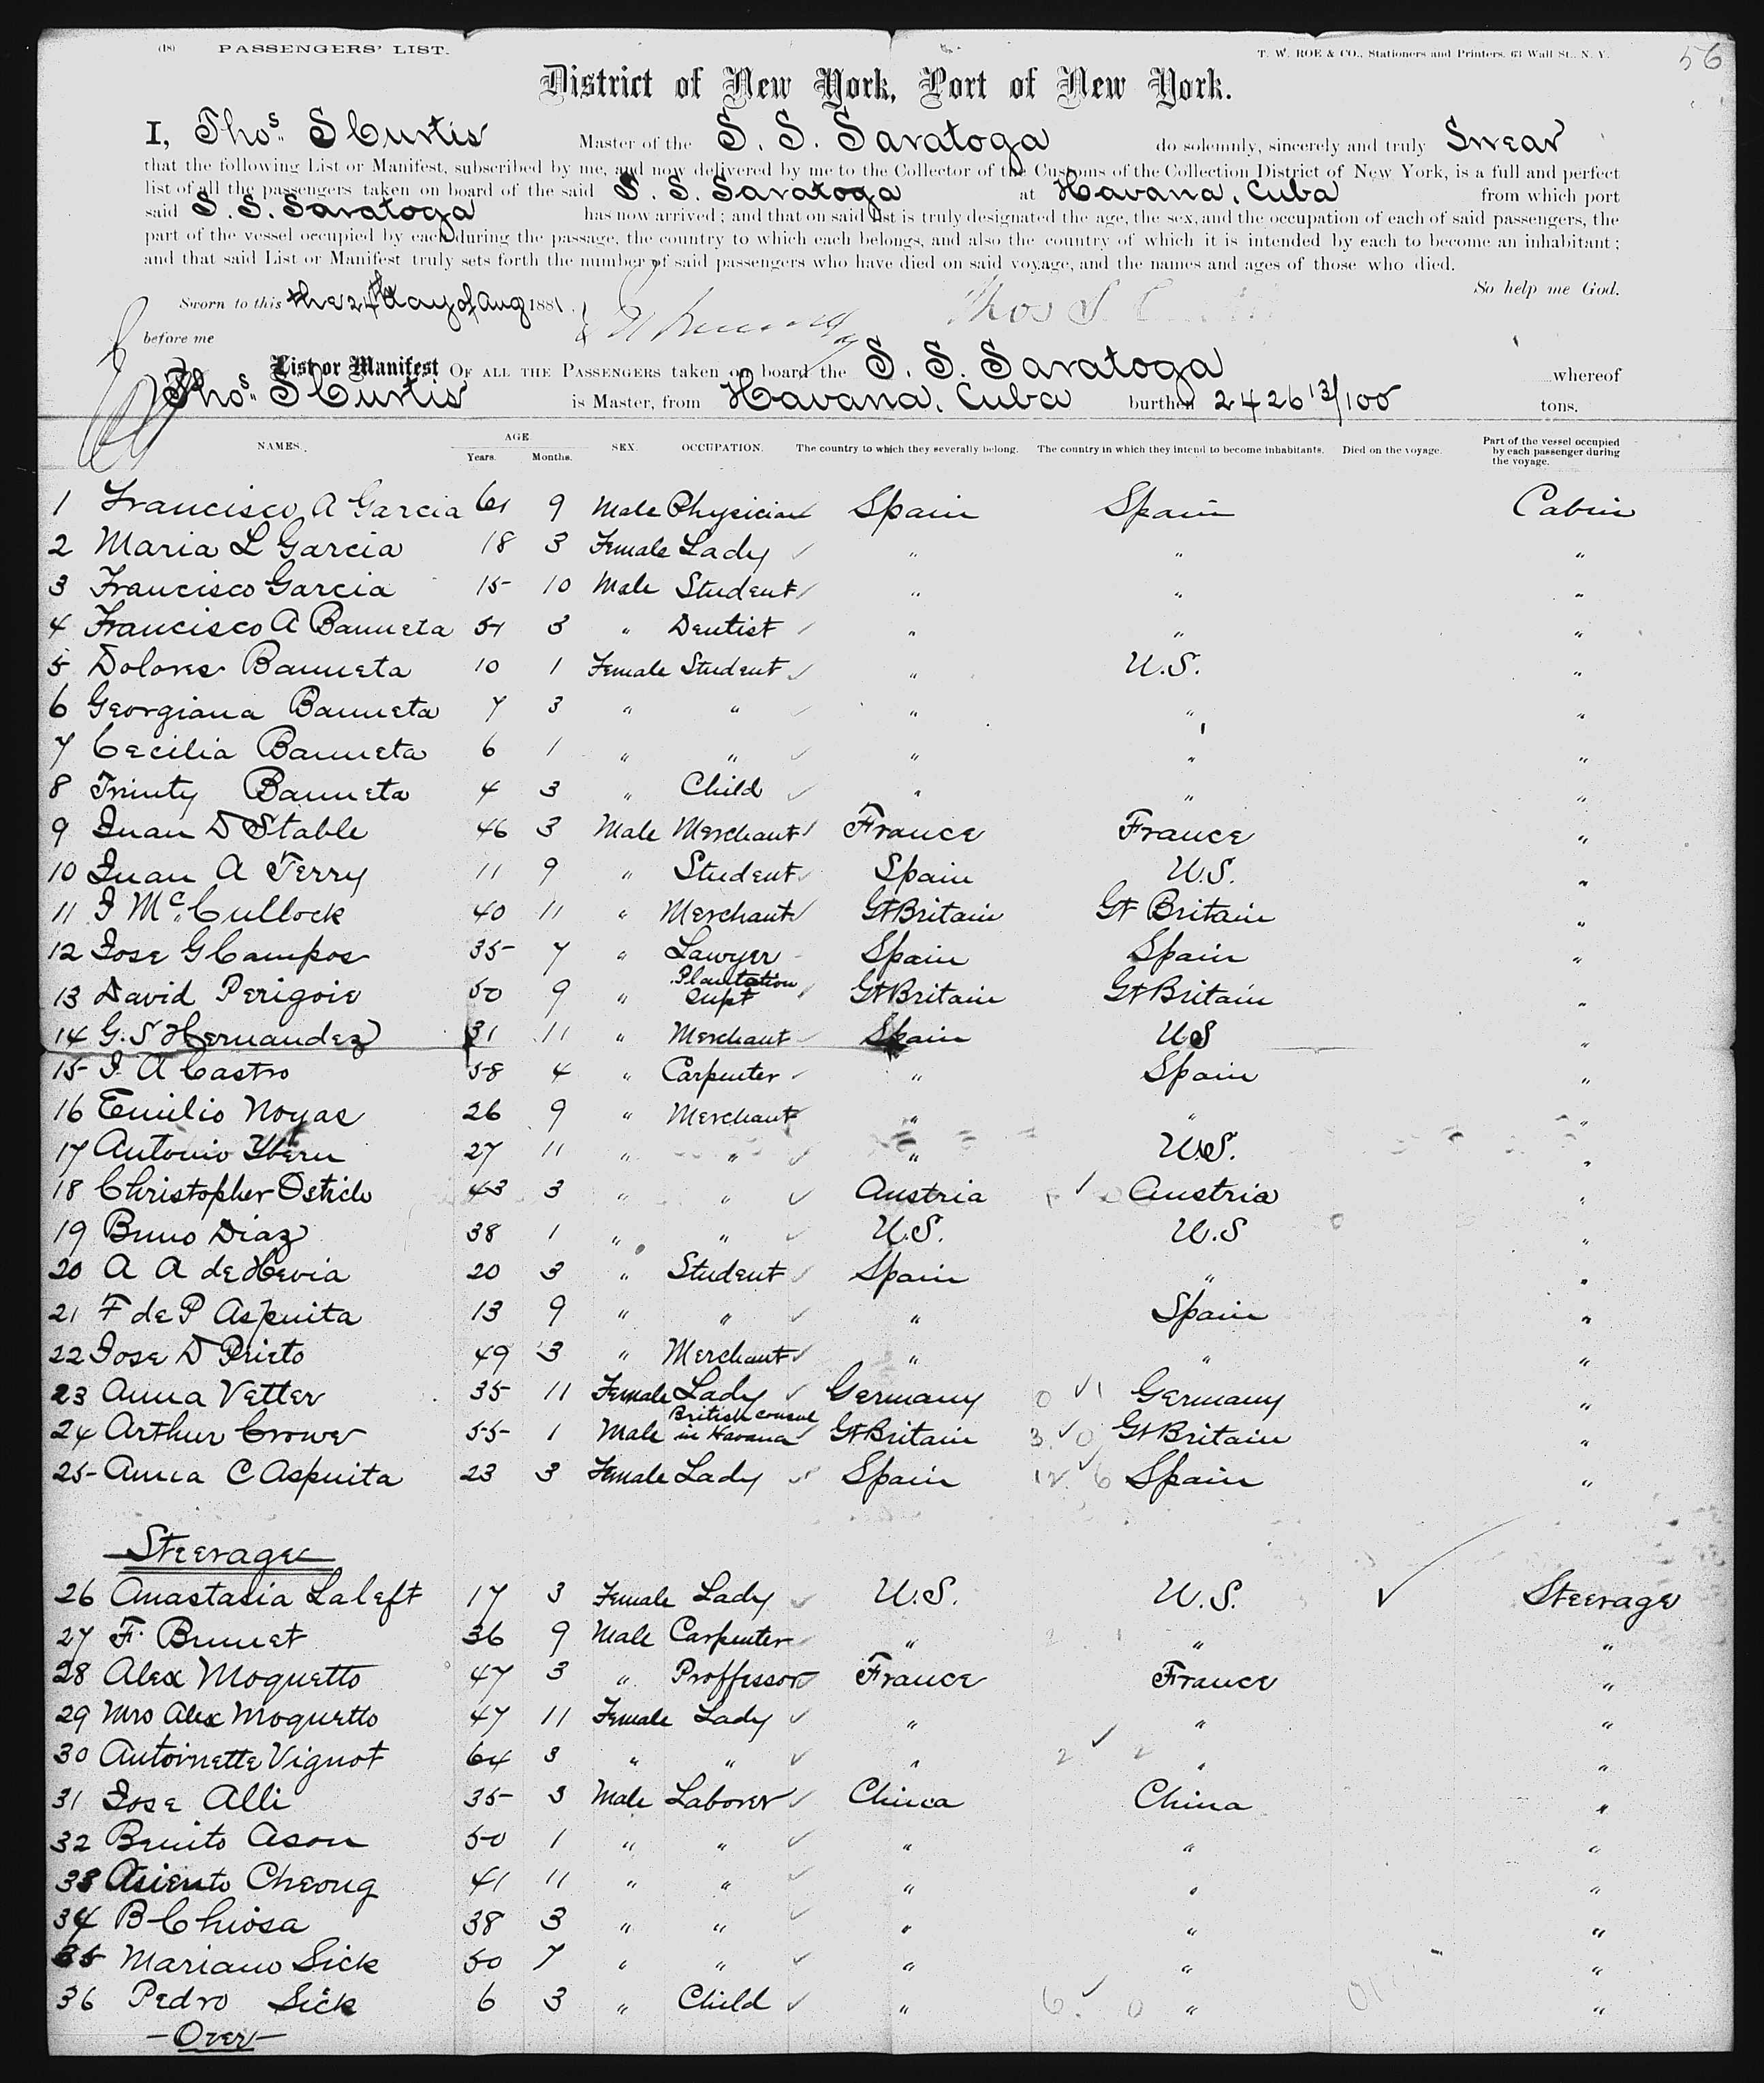 (18) PASSENGERS' LIST. T. W. ROE & CO., Stationers and Printers, 63 Wall St., N. Y. 56
District of New York, Port of New York.
I, Thos. S Curtis Master of the S. S. Saratoga do solemnly, sincerely and truly Swear
that the following List or Manifest, subscribed by me, and now delivered by me to the Collector of the Customs of the Collection District of New York, is a full and perfect
list of all the passengers taken on board of the said S. S. Saratoga at Havana, Cuba from which port
said S. S. Saratoga has now arrived; and that on said list is truly designated the age, the sex, and the occupation of each of said passengers, the
part of the vessel occupied by each during the passage, the country to which each belongs, and also the country of which it is intended by each to become an inhabitant;
and that said List or Manifest truly sets forth the number of said passengers who have died on said voyage, and the names and ages of those who died.
So help me God.
Sworn to this the 24th day of Aug 1881 Thos S
before me
List or Manifest OF ALL THE PASSENGERS taken on board the S. S. Saratoga whereof
Thos. S Curtis is Master, from Havana, Cuba burthen 2426 13/100 tons.
NAMES. AGE. Years. Months. SEX. OCCUPATION. The country to which they severally belong. The country in which they intend to become inhabitants. Died on the voyage. Part of the vessel occupied by each passenger during the voyage.
1 Francisco A Garcia 61 9 Male Physician Spain Spain Cabin
2 Maria L Garcia 18 3 Female Lady " " "
3 Francisco Garcia 15 10 Male Student " " "
4 Francisco A Banneta 51 3 " Dentist " " "
5 Dolores Banneta 10 1 Female Student " U.S. "
6 Georgiana Banneta 7 3 " " " " "
7 Cecilia Banneta 6 1 " " " " "
8 Trinity Banneta 4 3 " Child " " "
9 Juan D Stable 46 3 Male Merchant France France "
10 Juan A Terry 11 9 " Student Spain U.S. "
11 J McCullock 40 11 " Merchant Gt Britain Gt Britain "
12 Jose G Campos 35 7 " Lawyer Spain Spain "
13 David Perigoie 50 9 " Plantation Supt Gt Britain Gt Britain "
14 G. S Hernandez 31 11 " Merchant Spain US "
15 J. A Castro 58 4 " Carpenter " Spain "
16 Emilio Noyas 26 9 " Merchant " " "
17 Antonio Ybern 27 11 " " " U.S. "
18 Christopher Ostich 43 3 " " Austria Austria "
19 Bruno Diaz 38 1 " " U.S. U.S "
20 A A de Hevia 20 3 " Student Spain " "
21 F de P Aspuita 13 9 " " " Spain "
22 Jose D Prieto 49 3 " Merchant " " "
23 Anna Vetter 35 11 Female Lady Germany Germany "
24 Arthur Crowe 55 1 Male British Consul in Havana Gt Britain Gt Britain "
25 Anna C Aspuita 23 3 Female Lady Spain Spain "
Steerage
26 Anastasia Laleft 17 3 Female Lady U.S. U.S. Steerage
27 F. Brunet 36 9 Male Carpenter " " "
28 Alex Moquetto 47 3 " Proffessor France France "
29 Mrs Alex Moquetto 47 11 Female Lady " " "
30 Antoinette Vignot 64 3 " " " " "
31 Jose Alli 35 3 Male Laborer China China "
32 Benito Ason 50 1 " " " " "
33 Asiento Cheong 41 11 " " " " "
34 B Chiosa 38 3 " " " " "
35 Mariano Sick 50 7 " " " " "
36 Pedro Sick 6 3 " Child " " "
-Over-